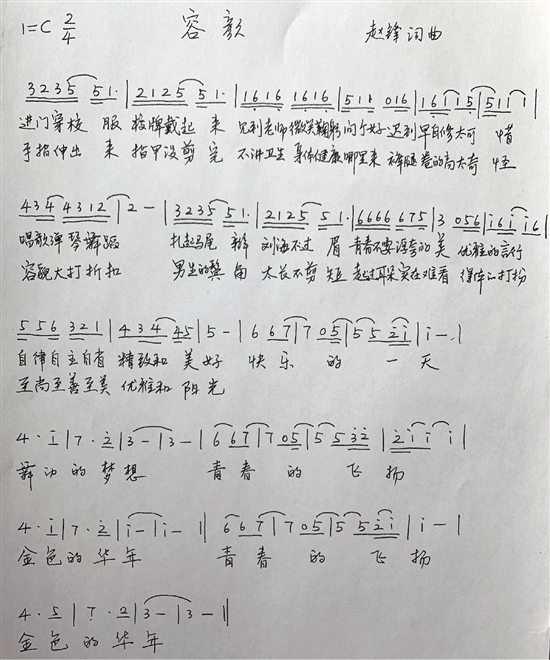 1=C 2/4 容颜 赵锋词曲
3235 51·|2125 51·|1616 1616|511 016|16115|5111|
进门穿校服 校牌戴起来 见到老师微笑鞠躬问个好 迟到早自修太可惜
手指伸出来 指甲没剪完 不讲卫生身体健康哪里来 裤腿卷的高太奇怪
434 4312|2-|3235 51·|2125 51·|6666 675|3 056|1616|
唱歌弹琴舞蹈 扎起马尾辫 刘海不过眉 青春不要浮夸的美 优雅的言行
容貌大打折扣 男生的鬓角 太长不剪短 超过耳朵实在难看 得体的打扮
556 321|434 45|5-|6 67|7 05|5 5 21|1-·|
自律自主自省 精致和美好 快乐的一天
至尚至善至美 优雅和阳光
4·1|7·2|3-|3-|667|7 05|5 5 32|211 1|
舞动的梦想 青春的飞扬
4·1|7·2|1-|1-|667|7 05|5 5 21|1-|
金色的华年 青春的飞扬
4·5|7·2|3-|3-‖
金色的华年